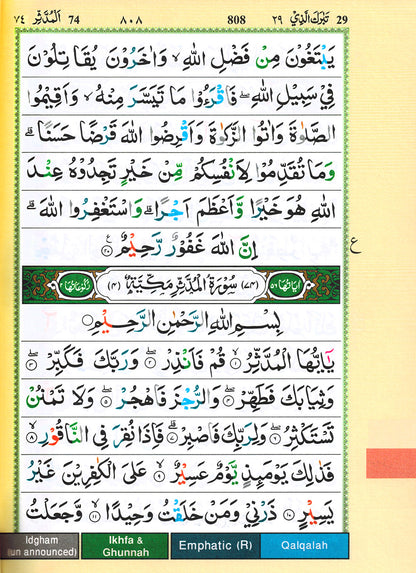 ٧٤ اَلْمُدَّثِّر 74 ٨٠٨ 808 تَبٰرَكَ الَّذِيْ ٢٩ 29
يَبْتَغُوْنَ مِنْ فَضْلِ اللهِ ۙ وَاٰخَرُوْنَ يُقَاتِلُوْنَ
فِيْ سَبِيْلِ اللهِ ۖ فَاقْرَءُوْا مَا تَيَسَّرَ مِنْهُ ۙ وَاَقِيْمُوا
الصَّلٰوةَ وَاٰتُوا الزَّكٰوةَ وَاَقْرِضُوا اللهَ قَرْضًا حَسَنًا ؕ
وَمَا تُقَدِّمُوْا لِاَنْفُسِكُمْ مِّنْ خَيْرٍ تَجِدُوْهُ عِنْدَ
اللهِ هُوَ خَيْرًا وَّاَعْظَمَ اَجْرًا ؕ وَاسْتَغْفِرُوا اللهَ ؕ
اِنَّ اللهَ غَفُوْرٌ رَّحِيْمٌ ۟ ٢٠ ع
اٰيَاتُهَا ٥٦ (٧٤) سُوْرَةُ الْمُدَّثِّرِ مَكِّيَّةٌ (٤) رُكُوْعَاتُهَا ٢
بِسْمِ اللهِ الرَّحْمٰنِ الرَّحِيْمِ
يٰۤاَيُّهَا الْمُدَّثِّرُ ۙ ١ قُمْ فَاَنْذِرْ ۙ ٢ وَرَبَّكَ فَكَبِّرْ ۙ ٣
وَثِيَابَكَ فَطَهِّرْ ۙ ٤ وَالرُّجْزَ فَاهْجُرْ ۙ ٥ وَلَا تَمْنُنْ
تَسْتَكْثِرُ ۙ ٦ وَلِرَبِّكَ فَاصْبِرْ ؕ ٧ فَاِذَا نُقِرَ فِي النَّاقُوْرِ ۙ ٨
فَذٰلِكَ يَوْمَئِذٍ يَّوْمٌ عَسِيْرٌ ۙ ٩ عَلَى الْكٰفِرِيْنَ غَيْرُ
يَسِيْرٍ ١٠ ذَرْنِيْ وَمَنْ خَلَقْتُ وَحِيْدًا ۙ ١١ وَّجَعَلْتُ
Idgham Ikhfa & Emphatic (R) Qalqalah
(un announced) Ghunnah